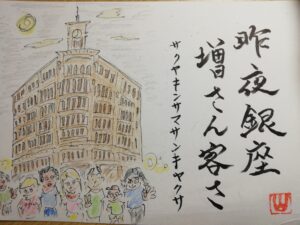 昨夜銀座
増さん客さ
サクヤキンサマサンキヤクサ